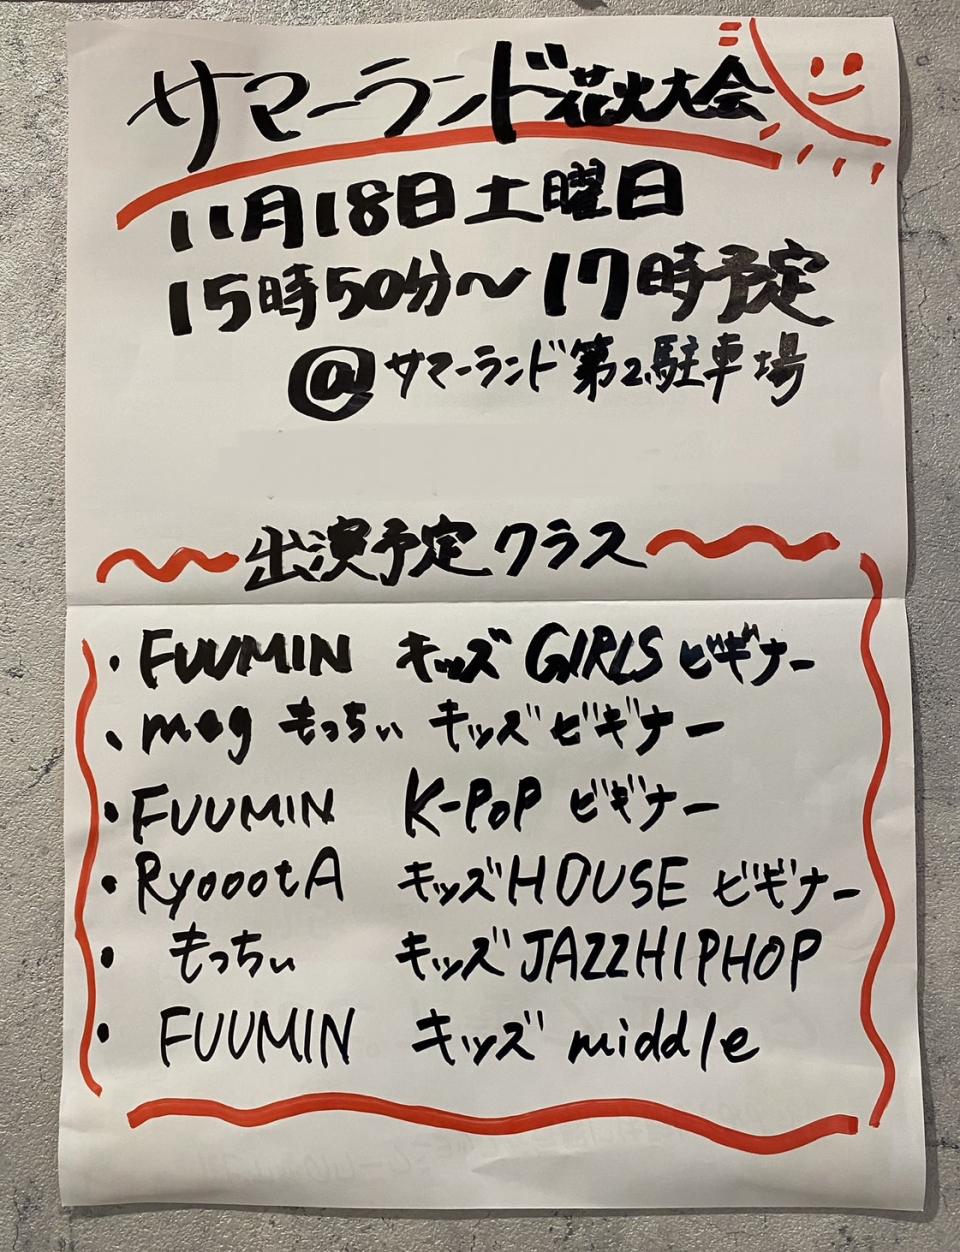 サマーランド花火大会
11月18日土曜日
15時50分〜17時予定
@サマーランド第2駐車場
出演予定クラス
・FUUMIN キッズGIRLSビギナー
・meg もっちぃ キッズビギナー
・FUUMIN K-POPビギナー
・RyoootA キッズHOUSEビギナー
・もっちぃ キッズJAZZHIPHOP
・FUUMIN キッズmiddle